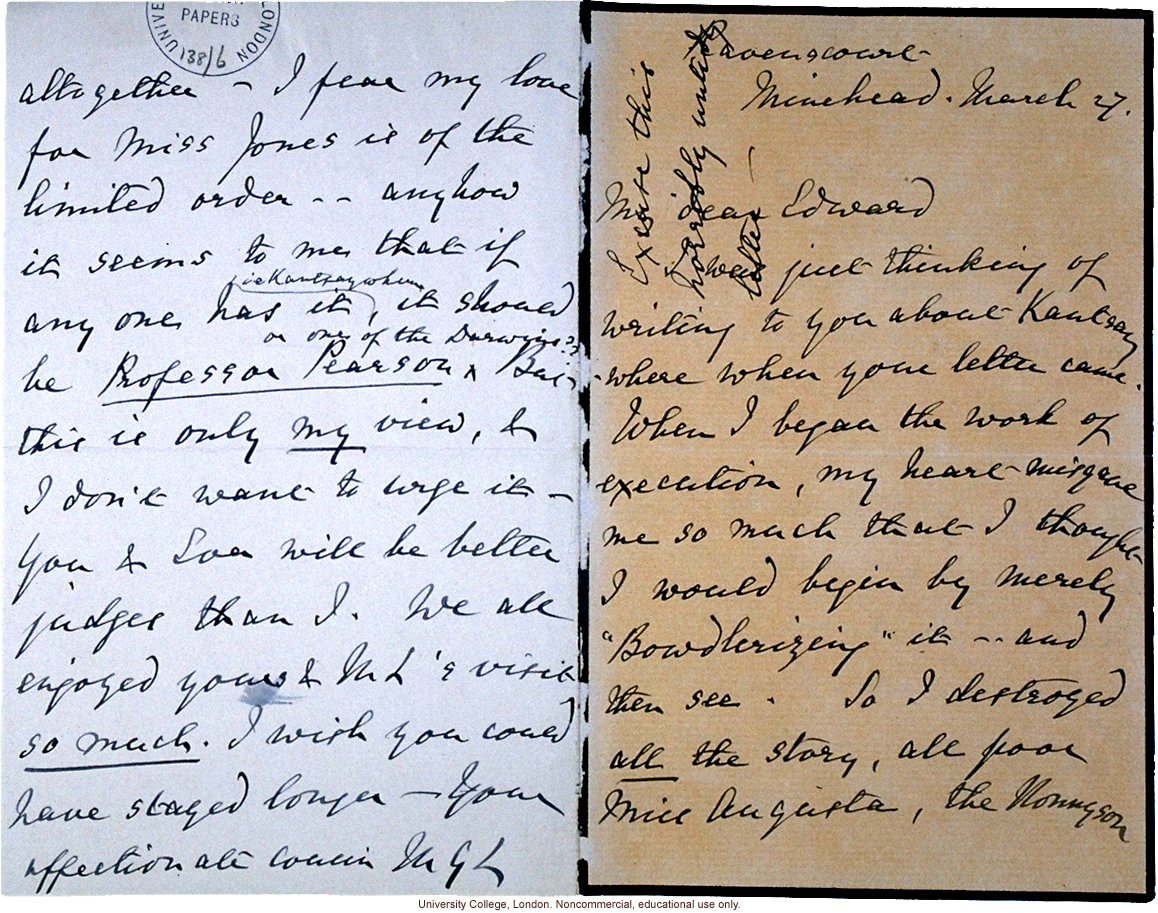 PAPERS
LONDON
138/6
altogether – I fear my love
for Miss Jones is of the
limited order -- anyhow
it seems to me that if
ie Kantsaywhere
any one has it, it should
or one of the Darwins?
be Professor Pearson x But
this is only my view, &
I don't want to urge it –
You & will be better
judges than I. We all
enjoyed yours & ML's visit
so much. I wish you could
have stayed longer – Your
affectionate cousin M G L
Ravenscourt
Minehead. March 27.
Excuse this
horribly untidy
letter
My dear Edward
I was just thinking of
writing to you about Kantsay
-where when your letter came.
When I began the work of
execution, my heart misgave
me so much that I thought
I would begin by merely
"Bowdlerizing" it -- and
then see. So I destroyed
all the story, all poor
Miss Augusta, the Nonnyson
University College, London. Noncommercial, educational use only.